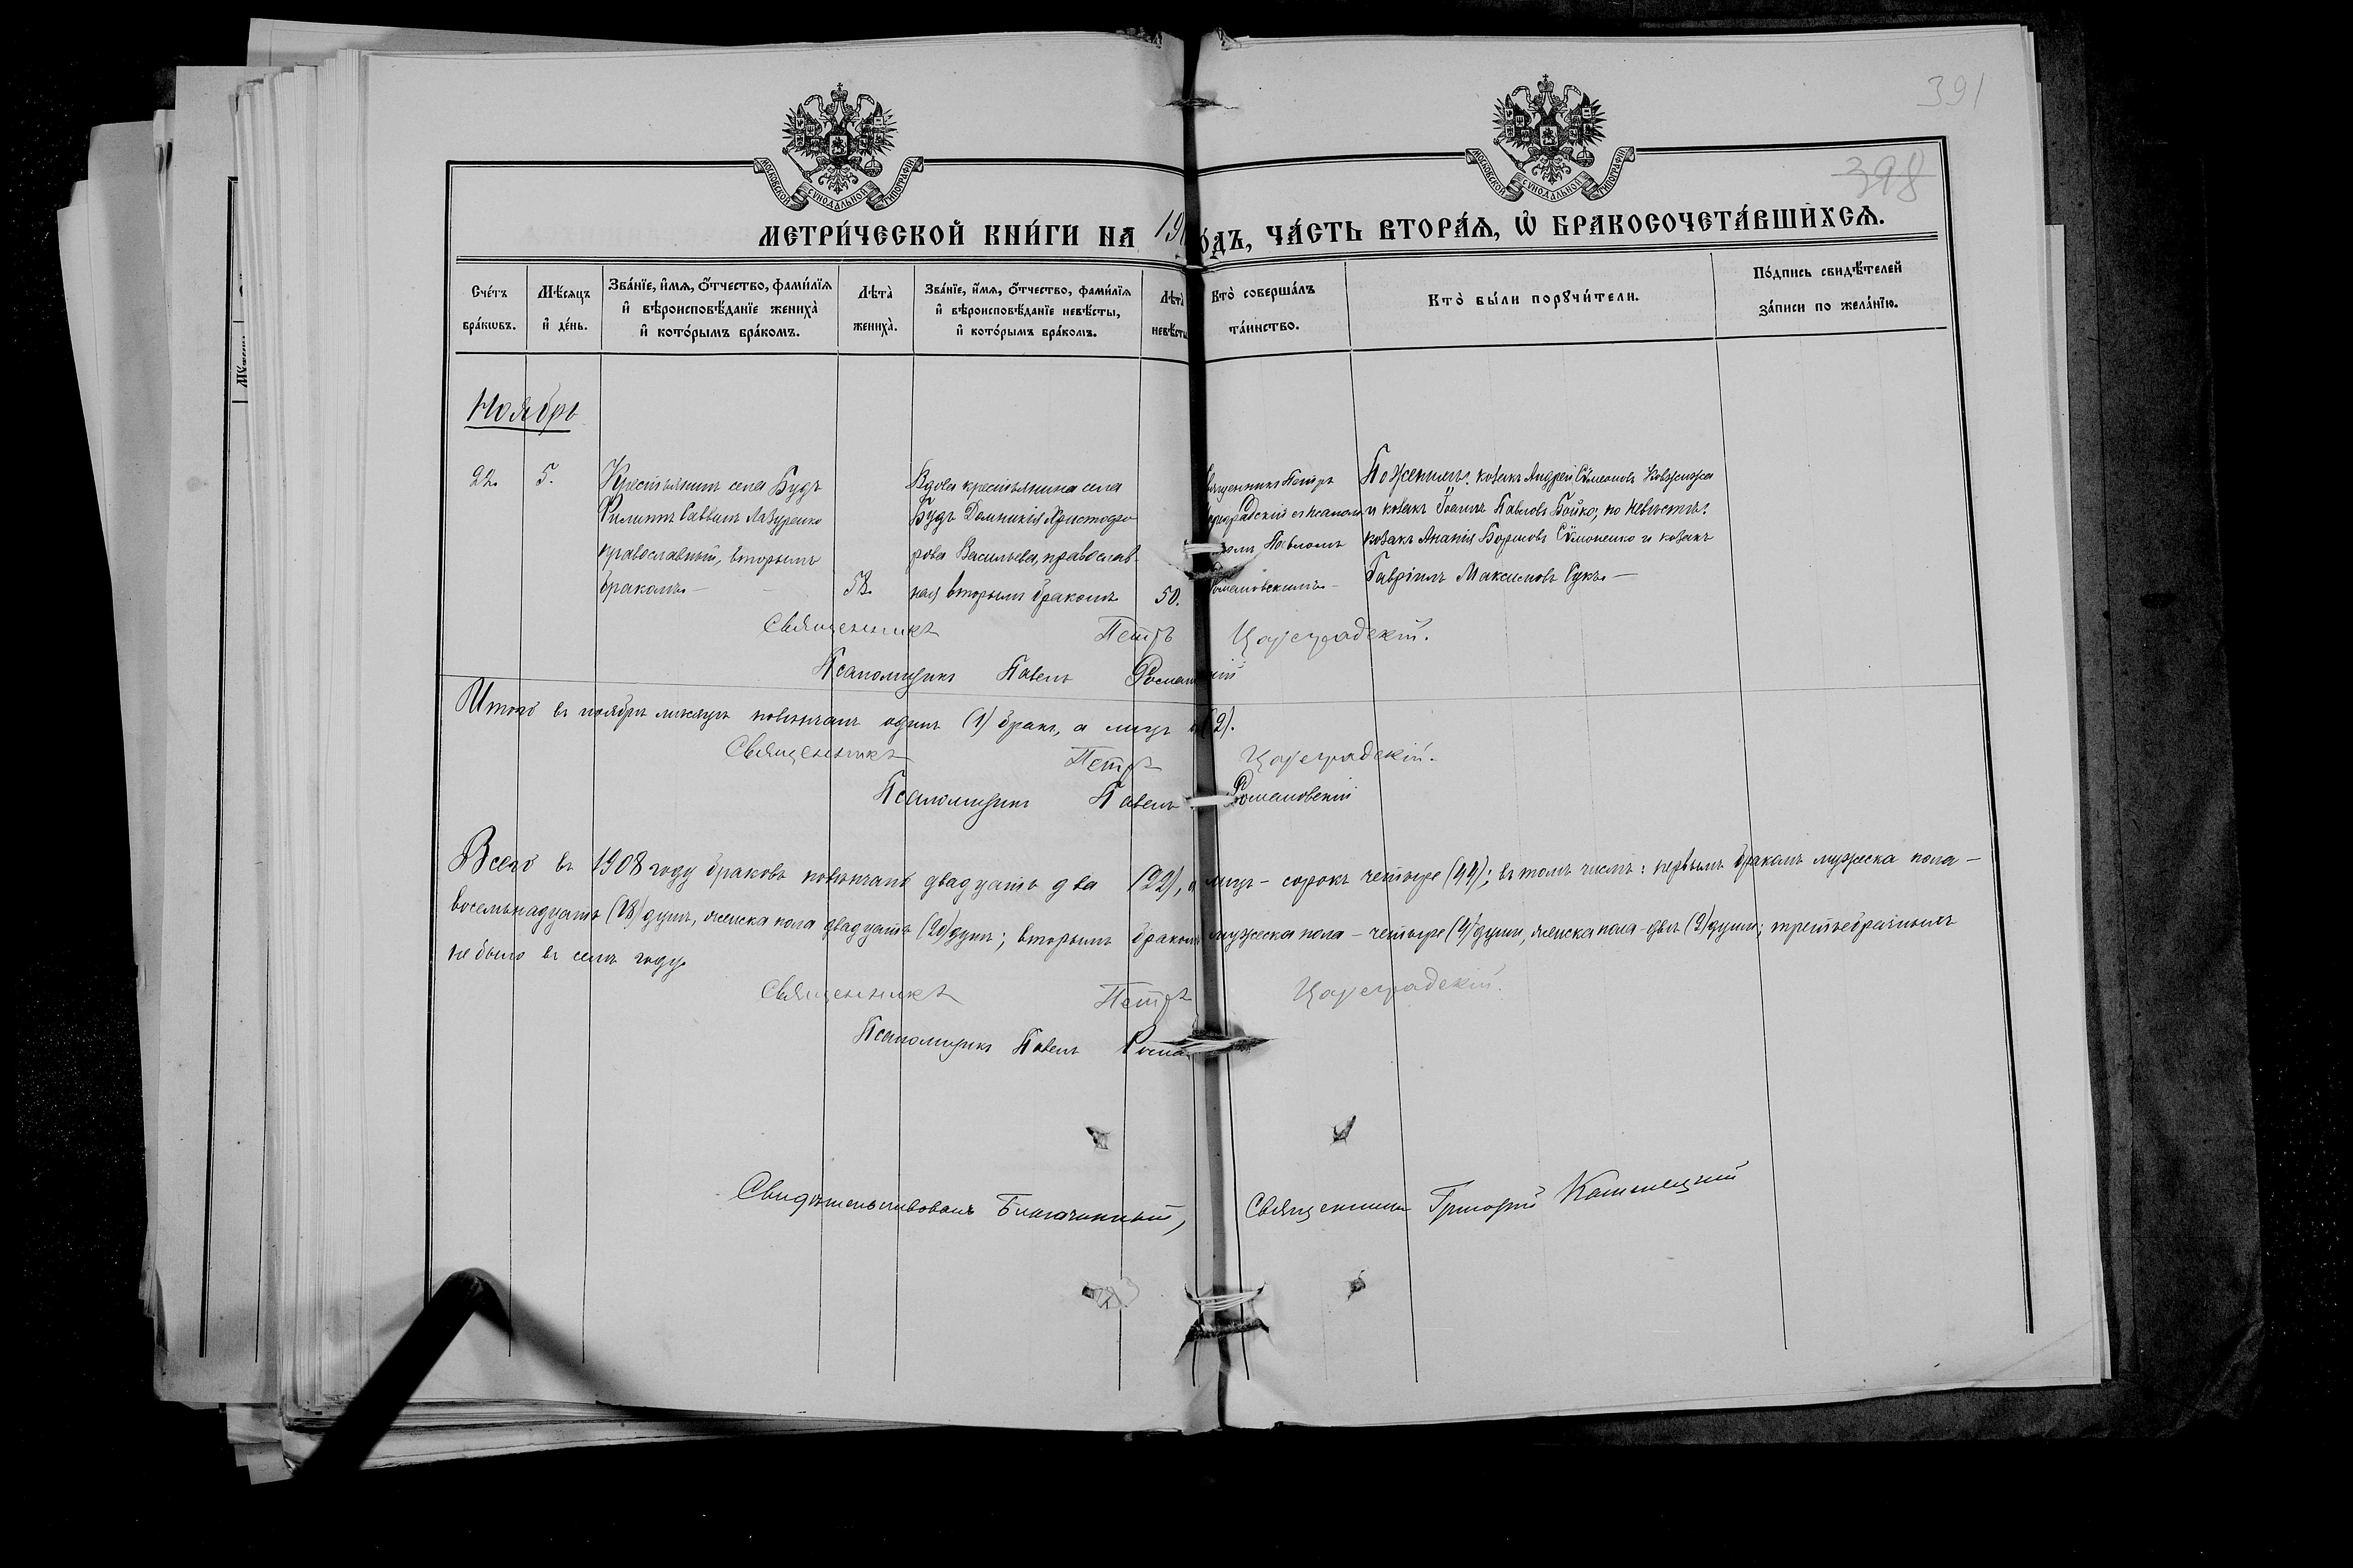 391
398
МОСКОВСКОЙ СѴНОДАЛЬНОЙ ТИПОГРАФІИ
МОСКОВСКОЙ СѴНОДАЛЬНОЙ ТИПОГРАФІИ
МЕТРИ́ЧЕСКОЙ КНИ́ГИ НА 19
О́ДЪ, ЧА́СТЬ ВТОРА́Я, Ѡ҆ БРАКОСОЧЕТА́ВШИХСЯ.
Сче́тъ бра́кѡвъ.
Мѣ́сяцъ и҆ де́нь.
Зва́нїе, и҆́мя, ѻ҆́тчество, фами́лїя и҆ вѣроисповѣ́данїе жениха̀ и҆ кото́рымъ бра́комъ.
Лѣта̀ жениха̀.
Зва́нїе, и҆́мя, ѻ҆́тчество, фами́лїя и҆ вѣроисповѣ́данїе невѣ́сты, и҆ кото́рымъ бра́комъ.
Лѣта̀ невѣ́сты
Кто̀ соверша́лъ та́инство.
Кто̀ бы́ли порꙋчи́тели.
По́дпись свидѣ́телей за́писи по жела́нїю.
Ноябрь
22. 5.
Крестьянинъ села Будъ
Филиппъ Саввинъ Лазуренко
православный, вторымъ
бракомъ.
Вдова крестьянина села
Будъ Домникія Христофо
рова Васильева, православ-
ная вторымъ бракомъ
50.
священникъ Петръ
Цареградскій съ псалом
Павломъ
Романовскимъ.
По женихѣ: козакъ Андрей Сѵмеоновъ
и козакъ Іоаннъ Павловъ Бойко; по невѣстѣ:
козакъ Ананія Сѵмоненко и козакъ
Гавріилъ Максимовъ Сукъ.
Священникъ Петръ Цареградскій.
Псаломщикъ Павелъ Романовскій
Итого въ ноябрѣ мѣсяцѣ повѣнчанъ одинъ (1) бракъ, а лицъ (2).
Священникъ Петръ Цареградскій.
Псаломщикъ Павелъ Романовскій
Всего въ 1908 году браковъ повѣнчано двадцать два (22), а лицъ - сорокъ четыре (44); въ томъ числѣ: первымъ бракомъ мужеска пола -
восемьнадцать (18) душъ, женска пола двадцать (20) душъ; вторымъ бракомъ мужеска пола - четыре (4) души, женска пола - двѣ (2) души; третьебрачныхъ
не было въ семъ году.
Священникъ Петръ Цареградскій.
Псаломщикъ Павелъ Рома
Свидѣтельствовалъ Благочинный, Священникъ Григорій